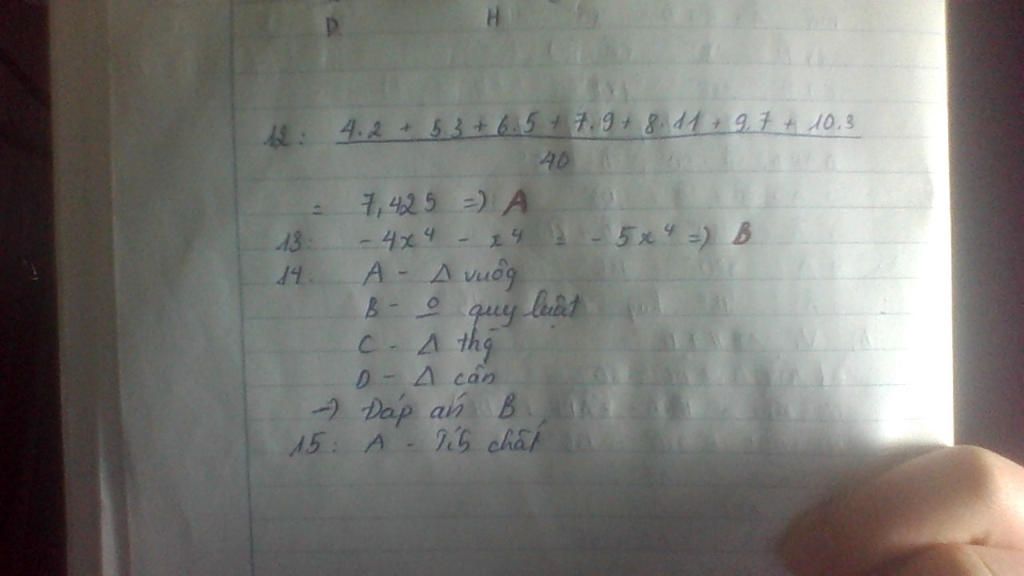 D H
12: 4.2 + 5.3 + 6.5 + 7.9 + 8.11 + 9.7 + 10.3
40
= 7,425 => A
13: - 4x⁴ - x⁴ = - 5x⁴ => B
14: A - Δ vuôg
B - o quy luật
C - Δ thg
D - Δ cân
-> Đáp án B
15: A - chất